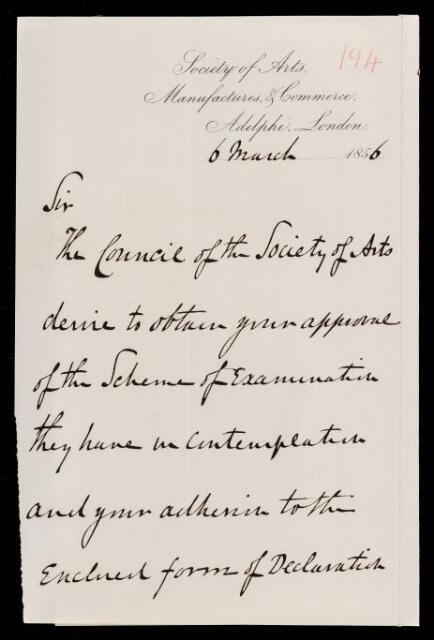 194
Society of Arts,
Manufactures, & Commerce,
Adelphi, London.
6 March 1856
Sir
The Council of the Society of Arts
desire to obtain your approval
of the Scheme of Examination
they have in contemplation
and your adhesion to the
Enclosed form of Declaration